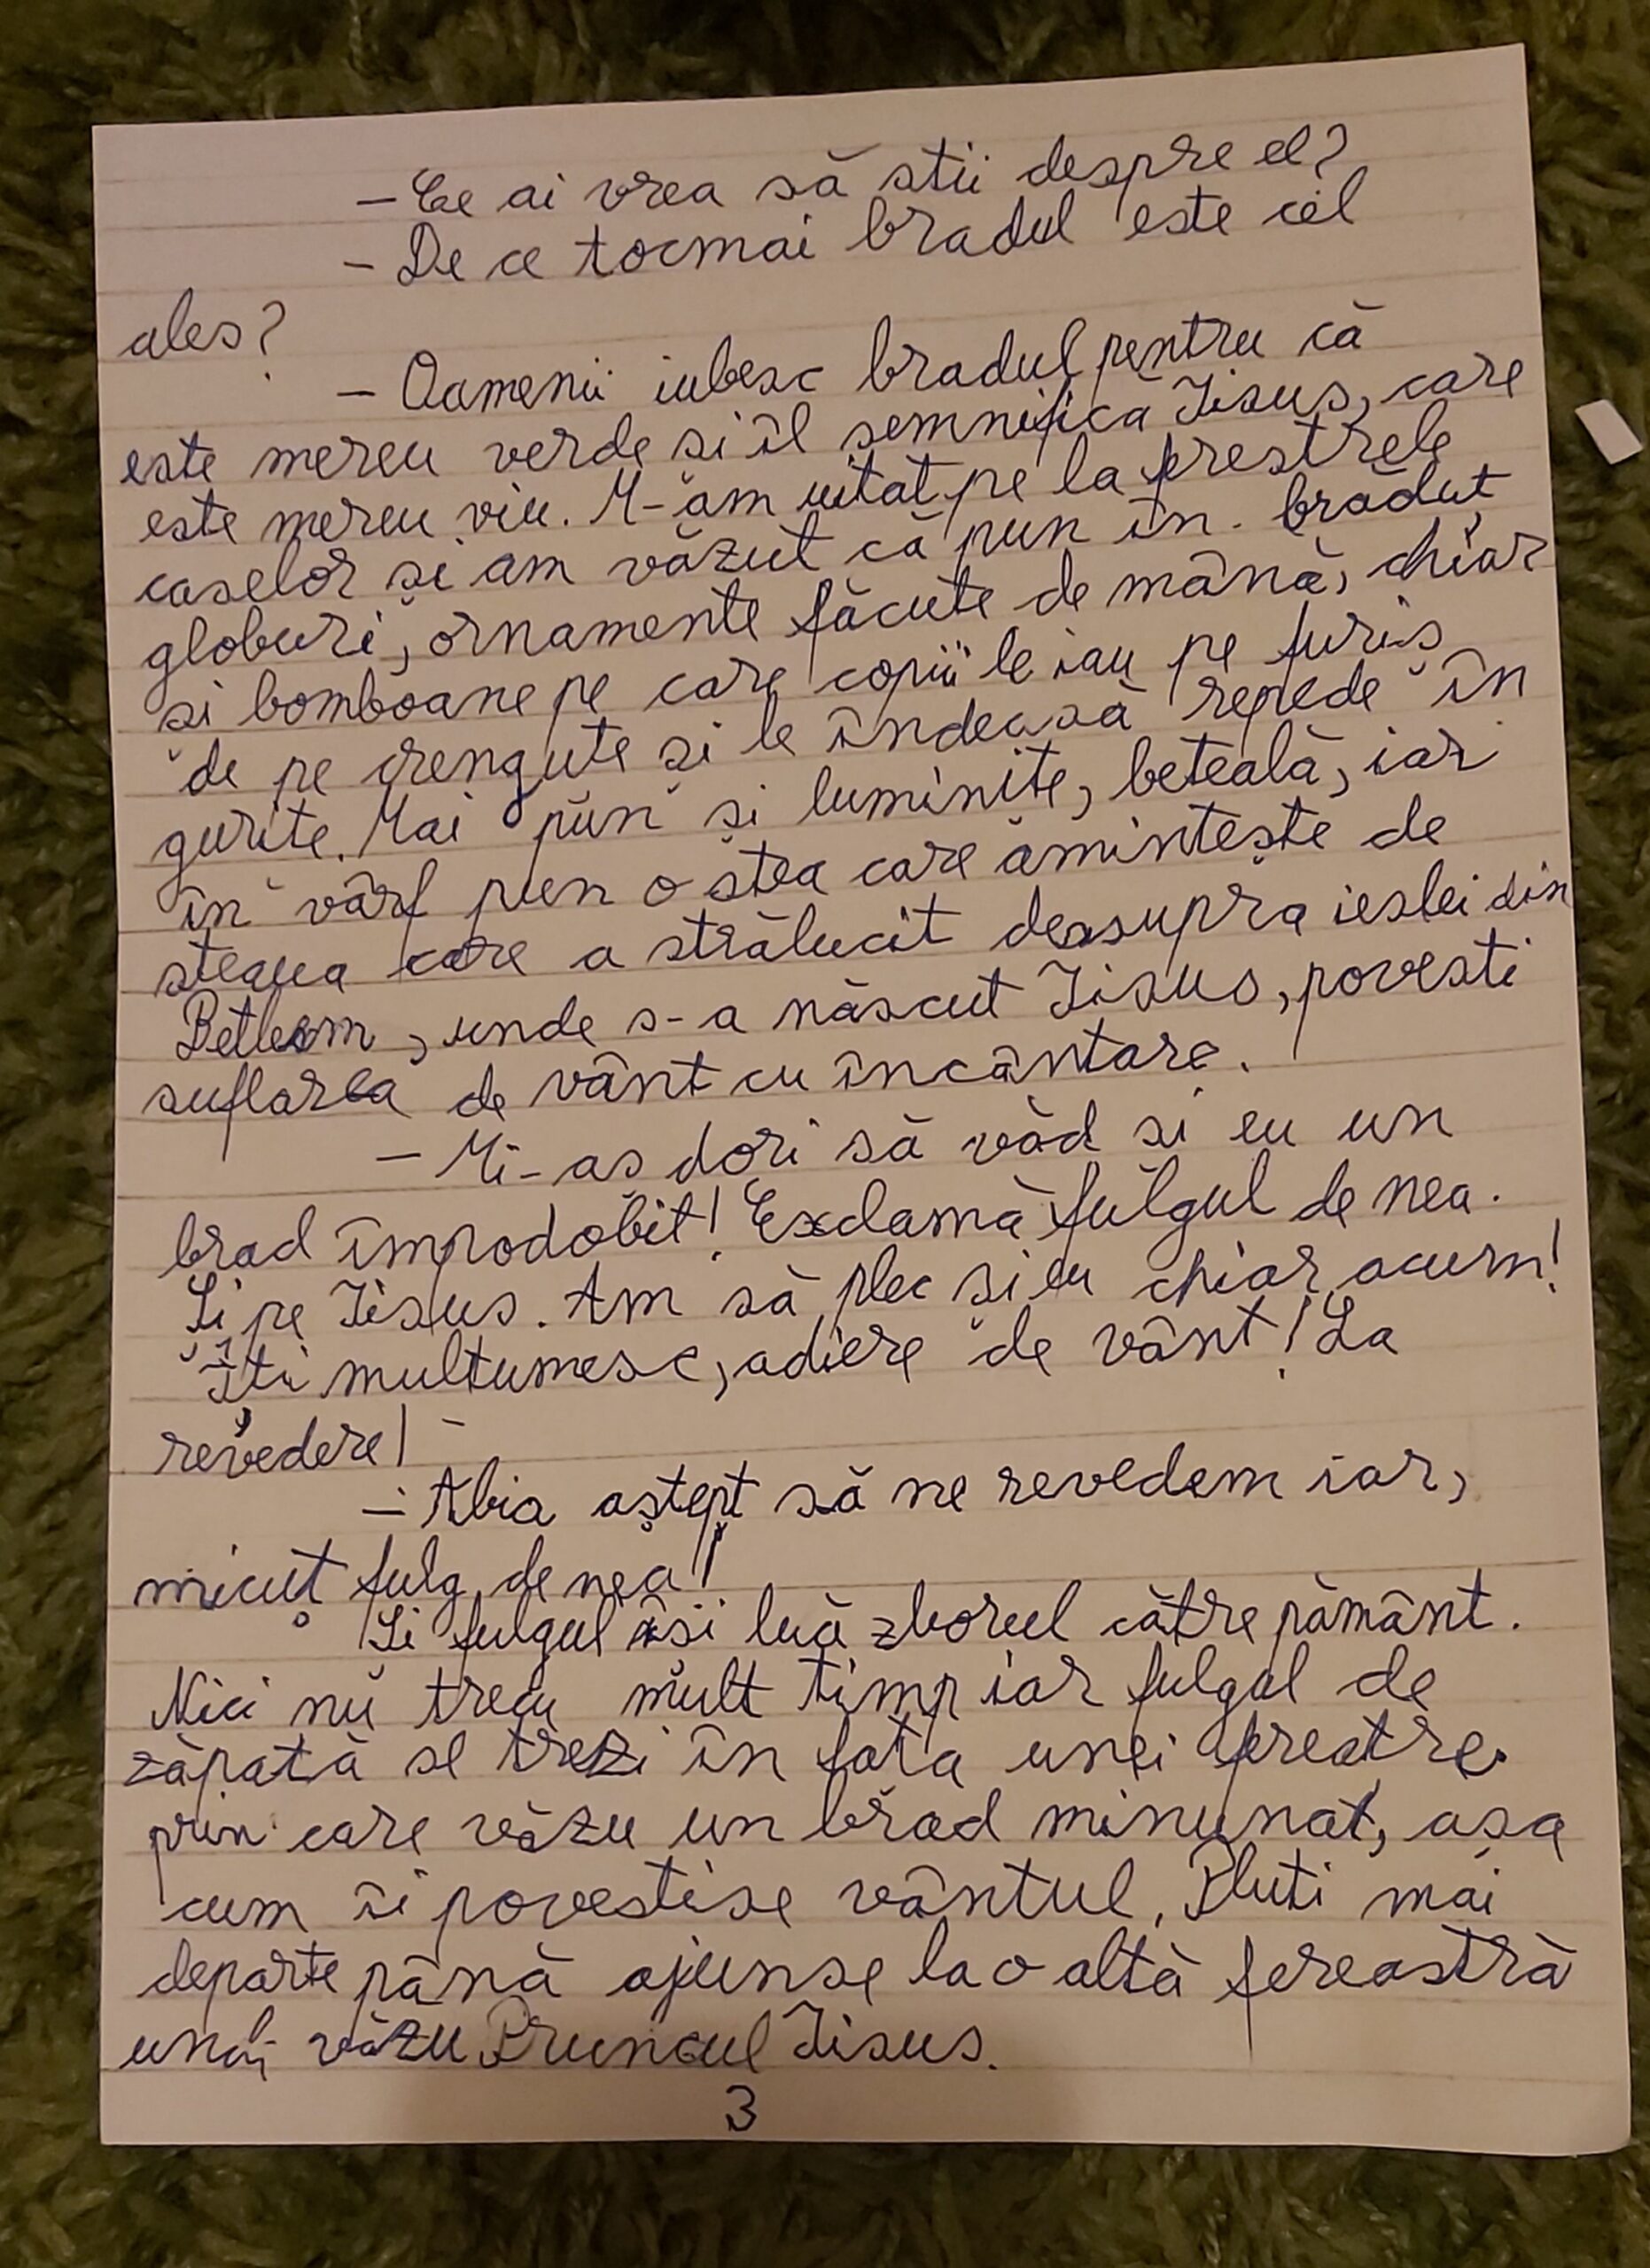 – Ce ai vrea să stii despre el?
– De ce tocmai bradul este cel
ales?
– Oamenii iubesc bradul pentru că
este mereu verde și îl semnifică Iisus, care
este mereu viu. M-am uitat pe la ferestrele
caselor și am văzut că pun în brăduț
globuri, ornamente făcute de mână, chiar
și bomboane pe care copiii le iau pe furiș
de pe crenguțe și le îndeasă repede în
gurițe. Mai pun și luminițe, beteală, iar
în vârf pun o stea care amintește de
steaua care a strălucit deasupra ieslei din
Betleem, unde s-a născut Iisus, povesti
suflarea de vânt cu încântare.
– Mi-as dori să văd si eu un
brad împodobit! Exclamă fulgul de nea.
Și pe Iisus. Am să plec și eu chiar acum!
Îți multumesc, adiere de vânt! La
revedere!
– Abia aștept să ne revedem iar,
micuț fulg de nea!
Și fulgul își luă zborul către pământ.
Nici nu trecu mult timp iar fulgul de
zăpată se trezi în fața unei
prin care văzu un brad minunat, asa
cum îi povestise vântul. Pluti mai
departe până ajunse la o altă fereastră
văzu Pruncul Iisus.
3